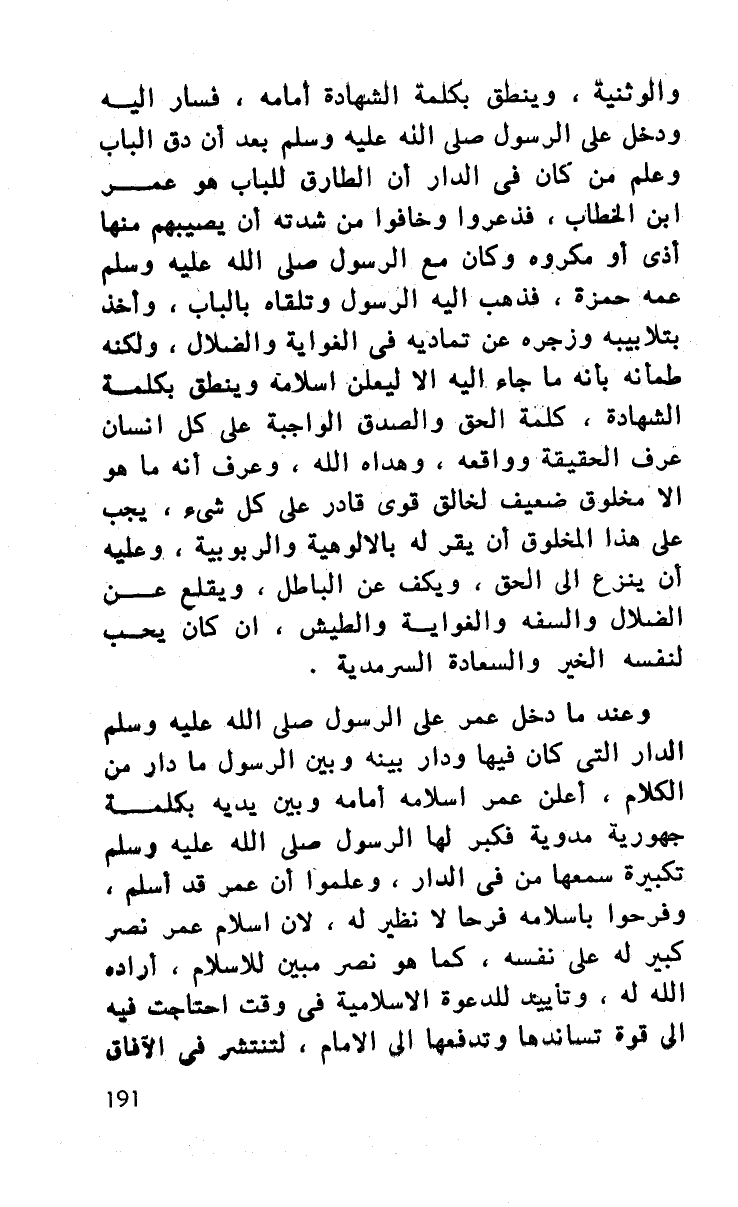 والوثنية ، وينطق بكلمة الشهادة أمامه ، فسار اليـــه
ودخل على الرسول صلى الله عليه وسلم بعد أن دق الباب
وعلم من كان فى الدار أن الطارق للباب هو عمـــــر
ابن الخطاب ، فذعروا وخافوا من شدته أن يصيبهم منها
أذى أو مكروه وكان مع الرسول صلى الله عليه وسلم
عمه حمزة ، فذهب اليه الرسول وتلقاه بالباب ، وأخذ
بتلابيبه وزجره عن تماديه فى الغواية والضلال ، ولكنه
طمأنه بأنه ما جاء اليه الا ليعلن اسلامه وينطق بكلمـــة
الشهادة ، كلمة الحق والصدق الواجبة على كل انسان
عرف الحقيقة وواقعه ، وهداه الله ، وعرف أنه ما هو
الا مخلوق ضعيف لخالق قوى قادر على كل شىء ، يجب
على هذا المخلوق أن يقر له بالالوهية والربوبية ، وعليه
أن ينزع الى الحق ، ويكف عن الباطل ، ويقلع عـــــن
الضلال والسفه والغوايــة والطيش ، ان كان يحـــب
لنفسه الخير والسعادة السرمدية .
وعند ما دخل عمر على الرسول صلى الله عليه وسلم
الدار التى كان فيها ودار بينه وبين الرسول ما دار من
الكلام ، أعلن عمر اسلامه أمامه وبين يديه بكلمـــــة
جهورية مدوية فكبر لها الرسول صلى الله عليه وسلم
تكبيرة سمعها من فى الدار ، وعلموا أن عمر قد أسلم ،
وفرحوا باسلامه فرحا لا نظير له ، لان اسلام عمر نصر
كبير له على نفسه ، كما هو نصر مبين للاسلام ، أراده
الله له ، وتأييد للدعوة الاسلامية فى وقت احتاجت فيه
الى قوة تساندها وتدفعها الى الامام ، لتنتشر فى الآفاق
191